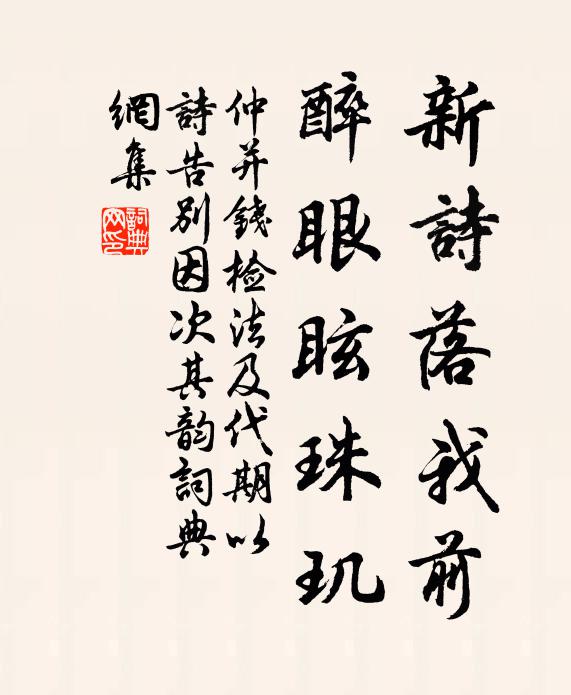 新詩落我前
醉眼眩珠玑
仲并錢檢法及代期以
詩告别因次其韵詞典
網集
詞典网印